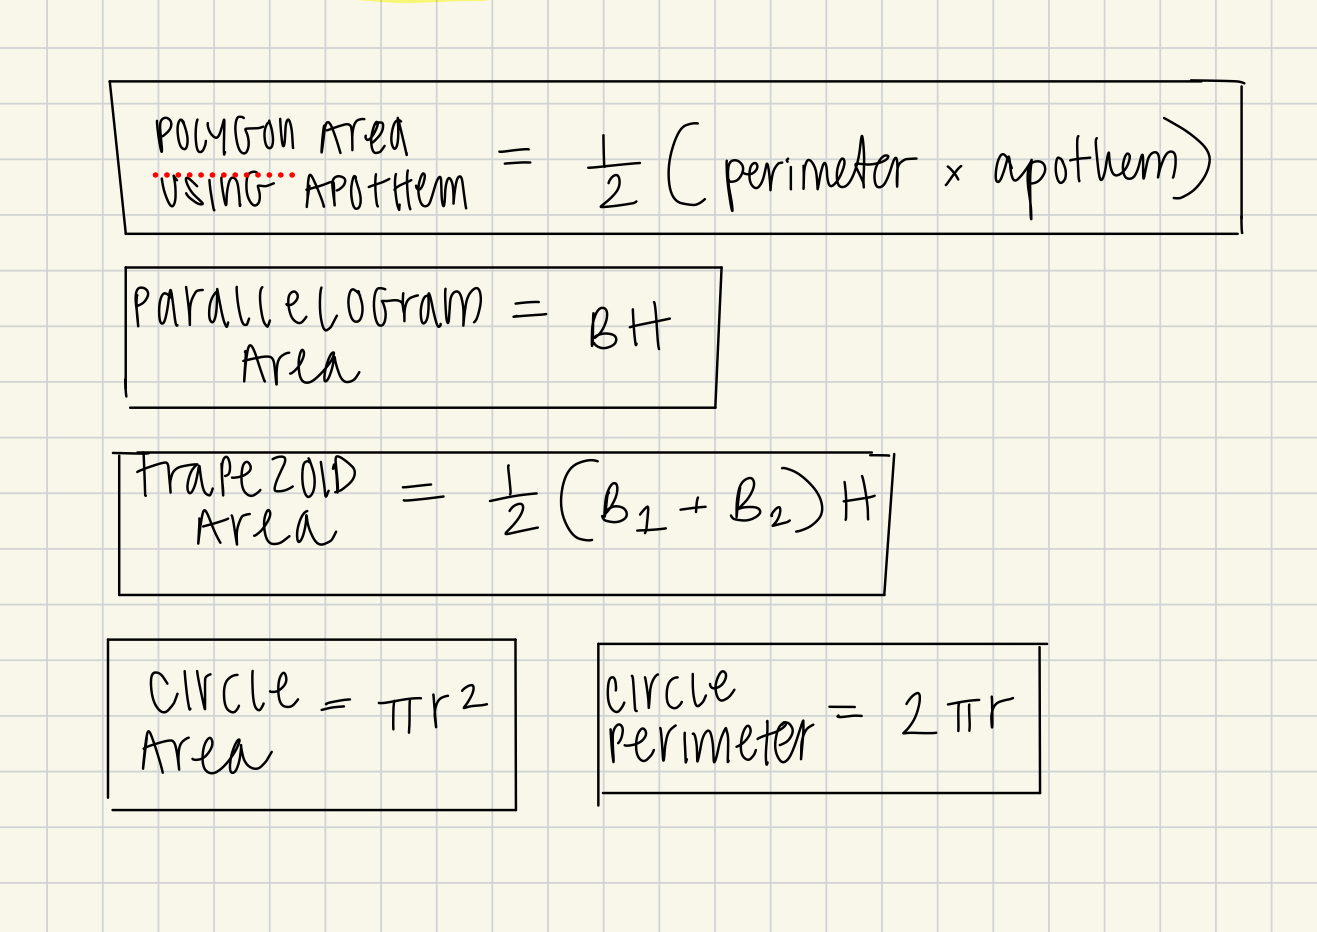 Polygon Area
Using Apothem = 1/2 (perimeter x apothem)
Parallelogram = BH
Area
Trapezoid = 1/2 (B₁ + B₂) H
Area
Circle = πr²
Area
Circle = 2πr
Perimeter